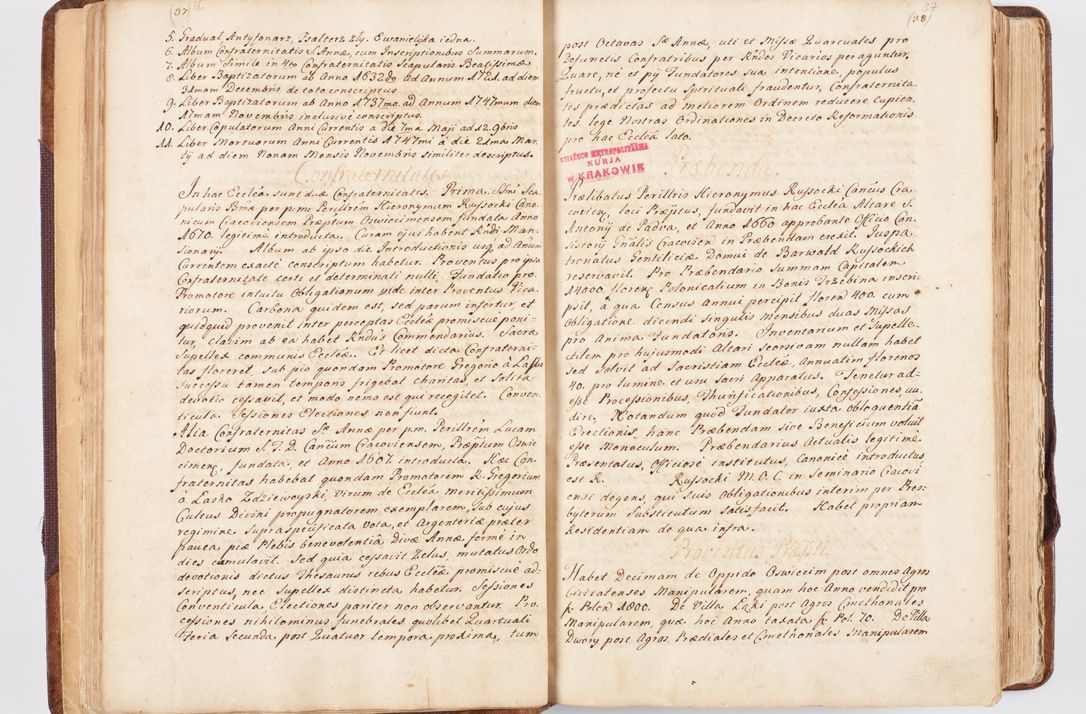 (37)
5. Gradual, Antyfonarz, Psalterz zły. Ewanielijka iedna.
6. Album Confraternitatis S. Annæ, cum Inscriptionibus Summarum.
7. Album Simile in 4to Confraternitatis Scapularis Beatissimæ
8. Liber Baptizatorum ab Anno 1632do ad Annum 1728. ad diem
31mam Decembris de toto conscriptus
9. Liber Baptizatorum ab Anno 1737mo. ad Annum 1747mum diem
Novembris inclusive conscriptus.
10. Liber Copulatorum Anni Currentis a die 7ma Maji ad 12. 9bris
11. Liber Mortuorum Anni Currentis 1747mi a die 21ma Mar
tij ad diem Nonam Mensis Novembris similiter descriptus.
Confraternitates
In hac Ecclêa sunt duæ Confraternitates. Prima. Ssmi Sca
pularis Bmæ per p. m. Perillrem Hieronymum Russocki Cano
nicum Cracoviensem Præptum Oswiecimensem fundata Anno
1670. legitimè introducta. Curam ejus habent Rndi Man
sionarij. Album ab ipso die Introductionis usq. ad Anum
Currentem exactè conscriptum habetur. Proventus pro ipsa
Confraternitate certi et determinati nulli, Fundatio pro
Promotore intuitu Obligationum vide inter Proventus Vica
riorum. Carbona quidem est, sed parum infertur, et
quidquid provenit inter perceptas Ecclêæ promiscuè poni
tur, clavim ab ea habet Rndus Commendarius. Sacra
Supellex communis Ecclêæ. Et licet dicta Confraterni
tas floreret, sub pio quondam Promotore Gregorio à
Successu tamen temporis frigebat charitas, et solita
devotio cessavit, et modo nemo est qui recogitet. Conven
ticula Sessiones Electiones non fiunt.
Alia Confraternitas Stæ Annæ per p. m. Perillrem Lucam
Doctorium S. T. D. Cancum Cracoviensem, Præptum Oswie
cimen, fundata, et Anno 1607. introducta. Hæc Con
fraternitas habebat quondam Promotorem R. Gregorium
à Lasko Zdziewoyski, Virum de Ecclêa meritissimum
Cultus Divini propugnatorem exemplarem, sub cujus
regimine supraspecificata Vota, et Argenteriæ præter
pauca, piæ Plebis benevolentiâ Divæ Annæ fermè in
dies cumulavit. Sed quia cessavit Zelus, mutatus Ordo
devotionis dictus Thesaurus rebus Ecclêæ promiscuè ad
scriptus, nec Supellex distincta habetur. Sessiones
Conventicula, Electiones pariter non observantur. Pro
cessiones nihilominus funebrales quolibet Quartuali
Feria Secunda, post Quatuor tempora proxima, tum
37
(38)
post Octavas Stæ Annæ, uti et Missæ Quartuales pro
Defunctis Confratribus per Rndos Vicarios peraguntur.
Quare, nè et pij Fundatores sua intentione, populus
fructu, et profectu Spirituali fraudentur, Confraternita
tes prædictas ad meliorem Ordinem reducere cupien
tes. lege Nostras Ordinationes in Decreto Reformationis
pro hac Ecclêa lato.
KSIĄŻĘCO METROPOLITALNA
KURJA
W KRAKOWIE
Præbendæ.
Prælibatus Perillris Hieronymus Russocki Cancus Cra
covien, loci Præptus, fundavit in hac Ecclêa Altare S.
Antonij de Padva, et Anno 1660 approbante Officio Con
sistorij Gnâlis Cracovien in Præbendam erexit. Juspa
tronatus Gentilicia Domui de Barwald Russockich
reservavit. Pro Præbendario Summam Capitalem
14000. floren. Polonicalium in Bonis Trzebina inscri
psit, à qua Census Annui percipit floren 400. cum
Obligatione dicendi singulis mensibus duas Missas
pro Anima Fundatoris. Inventarium et Supelle
ctilem pro hujusmodi Altari seorsivam nullam habet
sed solvit ad Sacristiam Ecclêæ, Annuatim florenos
40. pro lumine et usu Sacri Apparatus. Tenetur ad
esse Processionibus, Thurificationibus, Confessiones au
dire, Notandum quod Fundator iuxta obloquentiã
Erectionis, hanc Præbendam sive Beneficium voluit
esse Monoculum. Præbendarius Actualis legitimè
Præsentatus, Officiosè institutus, Canonicè introductus
est R. Russocki M. O. C. in Seminario Cracovi
ensi degens, qui suis obligationibus interim per Pres
byterum Substitutum satisfacit. Habet propriam
Residentiam de qua infra.
Proventus Præpti.
Habet Decimam de Oppido Oswiecim post omnes Agros
Civitatenses Manipularem, quam hoc Anno vendidit pro
f. Polon 1000. De Villa Łęki post Agros Cmethonales
Manipularem, quæ hoc Anno taxata f. Pol. 70. De Villa
Dwory post Agros Prædiales et Cmethonales Manipularem